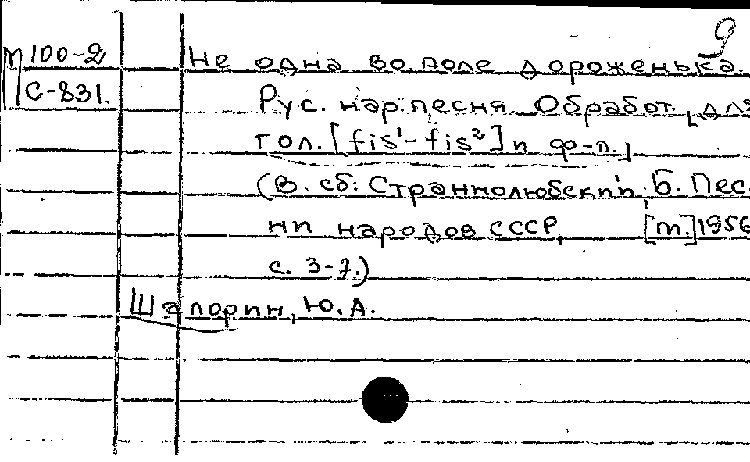 9
П 100-2 Не одна во поле дороженька.
С-831. Рус. нар. песня Обработ. [для
гол. [fis¹-fis²] и ф-п.]
(В. сб: Страннолюбский Б. Пес-
ни народов СССР, [м.] 1956
с. 3-7.)
Шапорин, Ю. А.